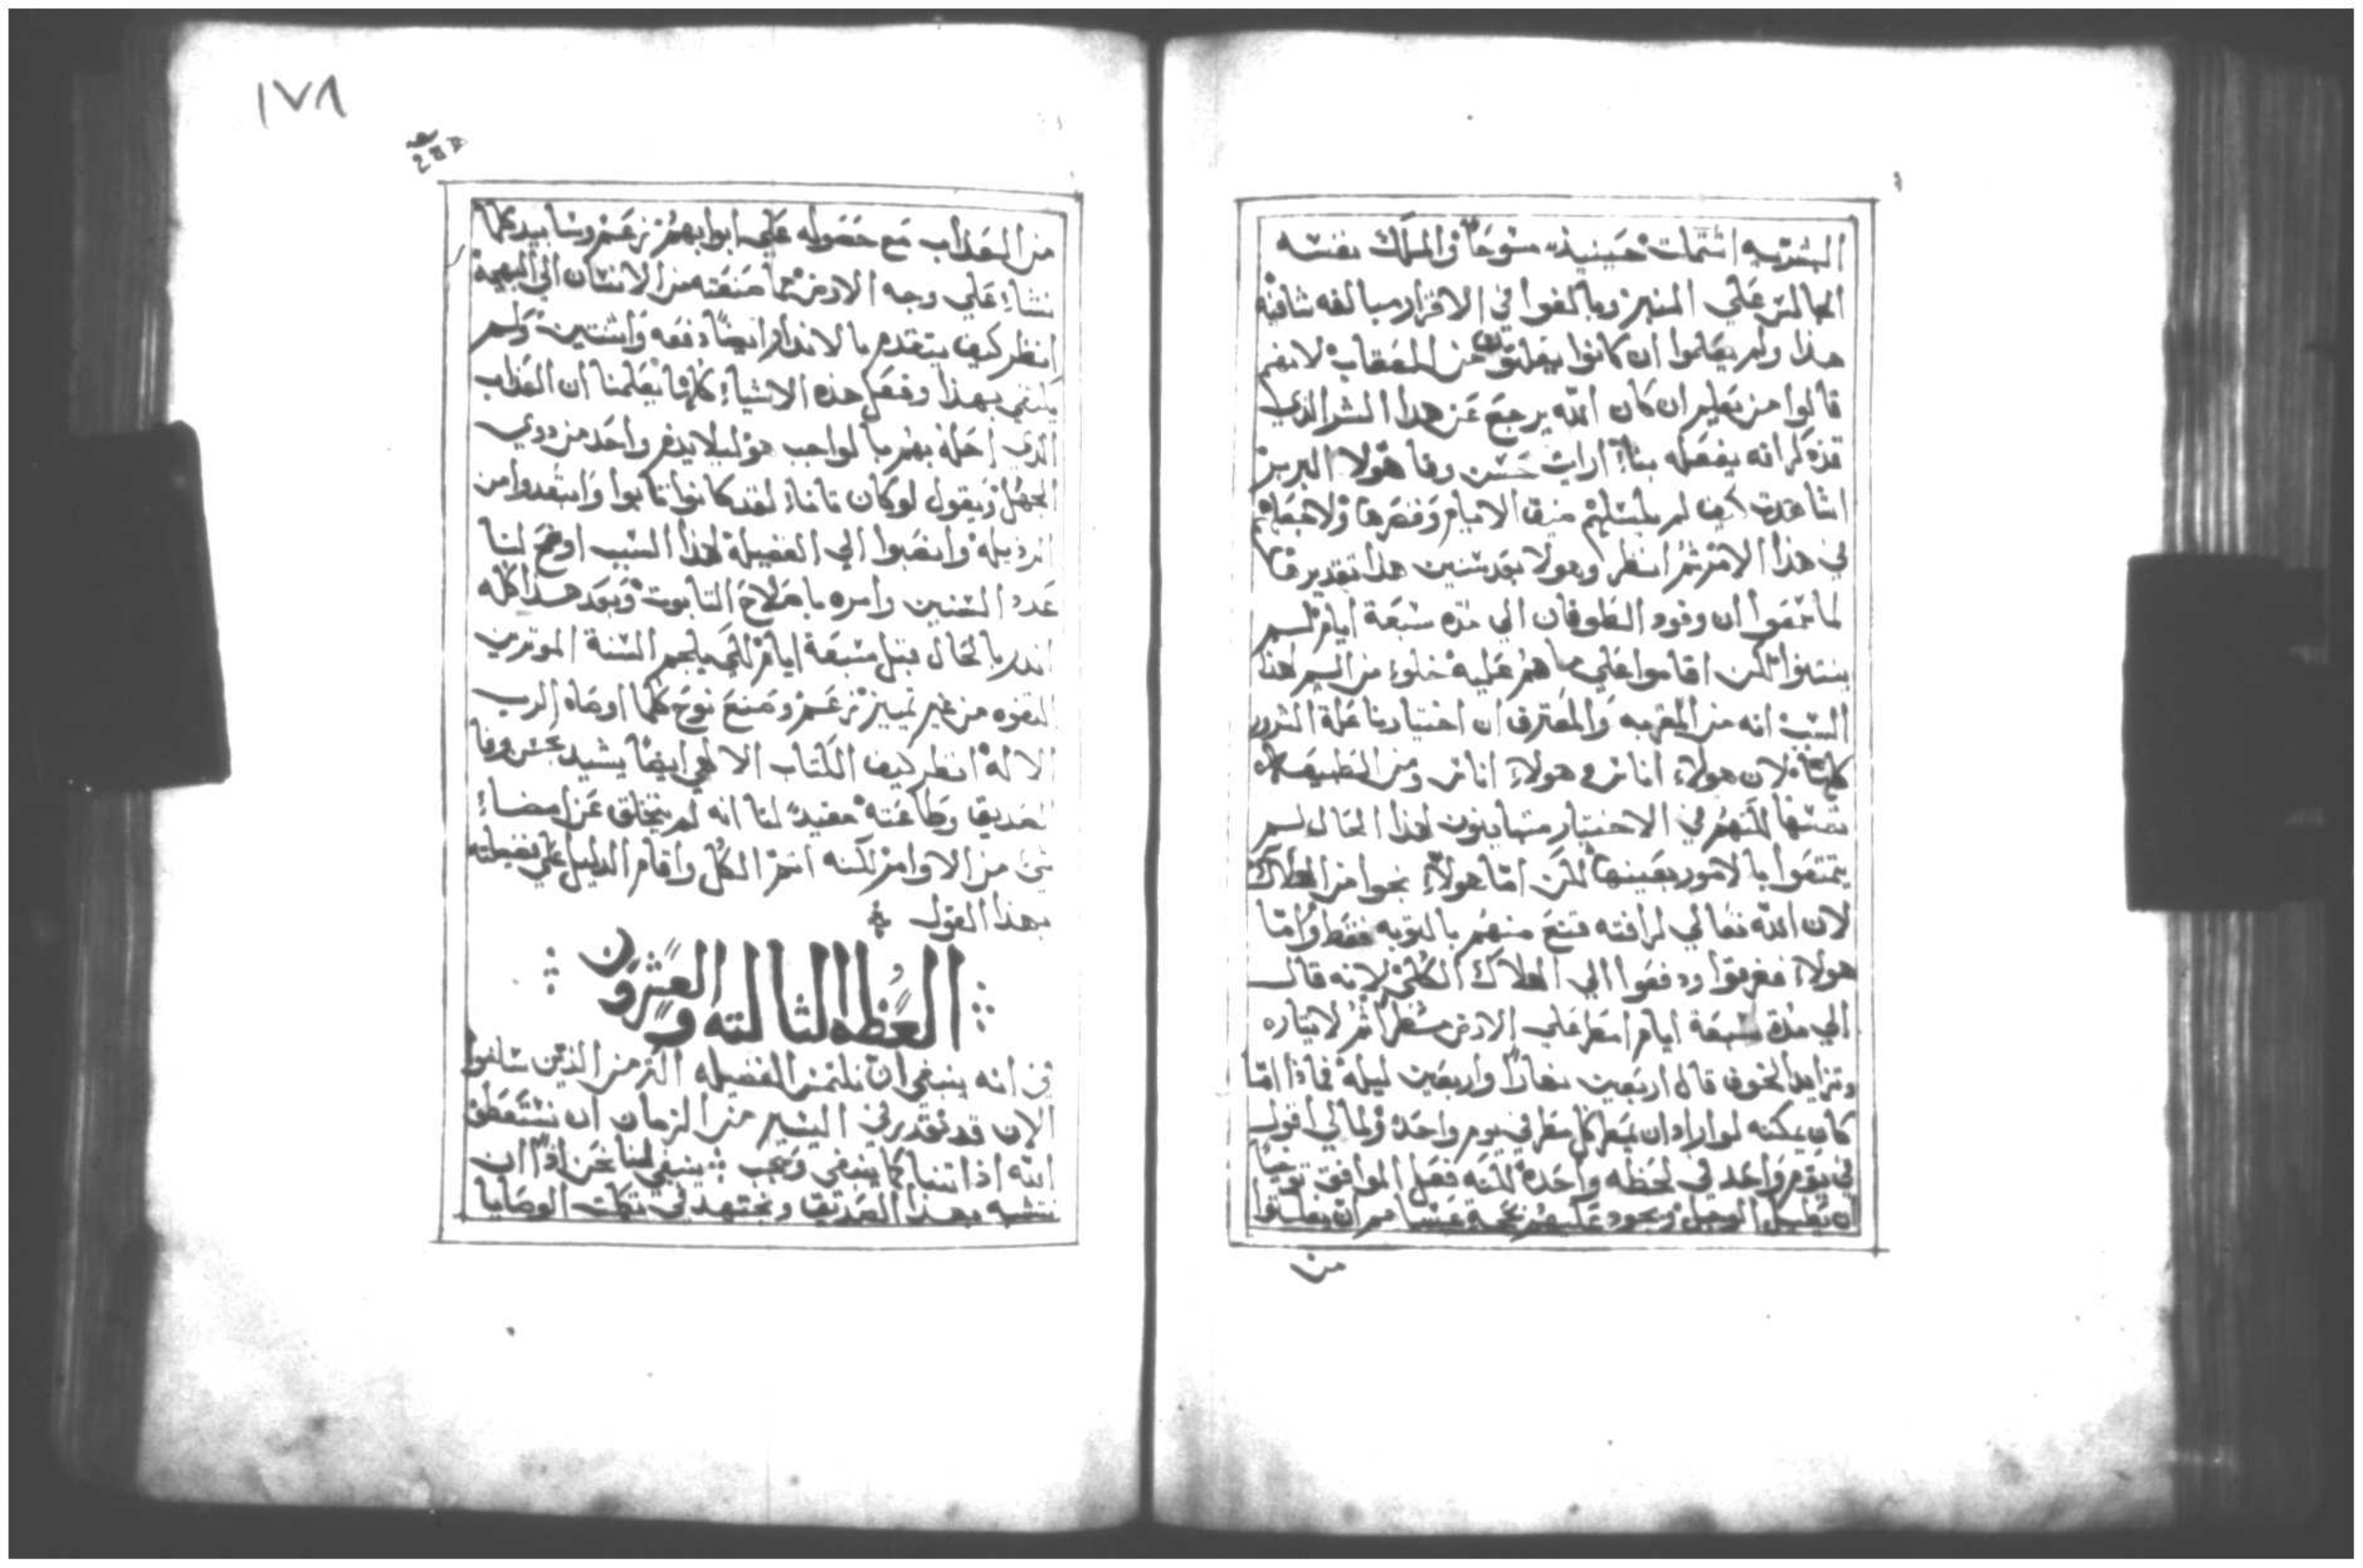 البشريه اشتملت حينيذ مسوحاً والملك نفسه
الجالس علي المنبر وبالغوا في الاقرار مبالغه شافيه
هذا ولم يعلموا ان كانوا يفلتون من العقاب لانهم
قالوا من يعلم ان كان الله يرجع عن هذا الشر الذي
قد ذكر انه يفعله بنا ارايت حسن وفا هولا البربر
اشاهدت كيف لم يكسلهم ضيق الايام وقصرها ولا
في هذا الامر ثم انظر وهولا بعد سنين هذا تقديرها
لما سمعوا ان وفود الطوفان الي مده سبعة ايام لم
ينتبهوا لكن اقاموا علي ما هم عليه خلوا من السير لهذا
السبب انه من المقر به والمعترف ان اختيارنا علة الشرور
كلها لان هولاء اناس وهولاء اناس ومن الطبيعه
نفسها لكنهم في الاختيار متباينون لهذا الحال لم
يتمتعوا بالامور بعينها لكن امّا هولاء نجوا من الهلاك
لان الله تعالي لرافته قنع منهم بالتوبه فقط وامّا
هولاء فغرقوا ودفعوا الي الهلاك الكلي لانه قال
الي مدة سبعة ايام امطر علي الارض مطراً ثم لايثاره
وتزايد الخوف قال اربعين نهاراً واربعين ليلة فماذا امّا
كان يمكنه لو اراد ان يمطر كل مطر في يوم واحد ولمالي اقول
في يوم واحد في لحظه واحدة لكنه فعل الموافق توخياً
ان تعليل الوجل ويجود عليهم بحجة عساهم ان يفلتوا
من
١٧٨
من العذاب مع حضوله علي ابوابهم زعم وسابيد كلما
نشاء علي وجه الارض مما صنعته من الانسان الي البهيمة
انظر كيف يتقدم بالانذار ايضاً دفعه واثنتين ولم
يكتفي بهذا وفعل هذه الاشياء كلها يعلمنا ان العذاب
الذي احله بهم بالواجب هو ليلا يدم واحد من دوي
الجهل ويقول لو كان تانا لقد كانوا تابوا وابتعدوا من
الرذيله وانصبوا الي الفضيلة لهذا السبب اوضح لنا
عدد السنين وامره باصلاح التابوت وبعد هذا كله
انذر بالحال قبل سبعة ايام لكي يلجم السنة الموثرين
التفوه من غير تمييز زعم وصنع نوح كلما اوصاه الرب
الالة انظر كيف الكتاب الالهي ايضاً يشيد بحسن وفا
الصديق وطاعته مفيدً لنا انه لم يتخلق عن امضاء
شي من الاوامر لكنه اتمم الكل واقام الدليل علي فضيلته
بهذا القول
العظه الثالثه والعشرون
في انه ينبغي ان نلتمس الفضيله اكثر من الذين سلفوا
الان قد نقدر في اليسير من الزمان ان نستعطف
الله اذا انتبهنا كما ينبغي ويجب ينبغي لنا نحن اذاً ان
نتشبه بهذا الصديق ونجتهد في تكلت الوصايا